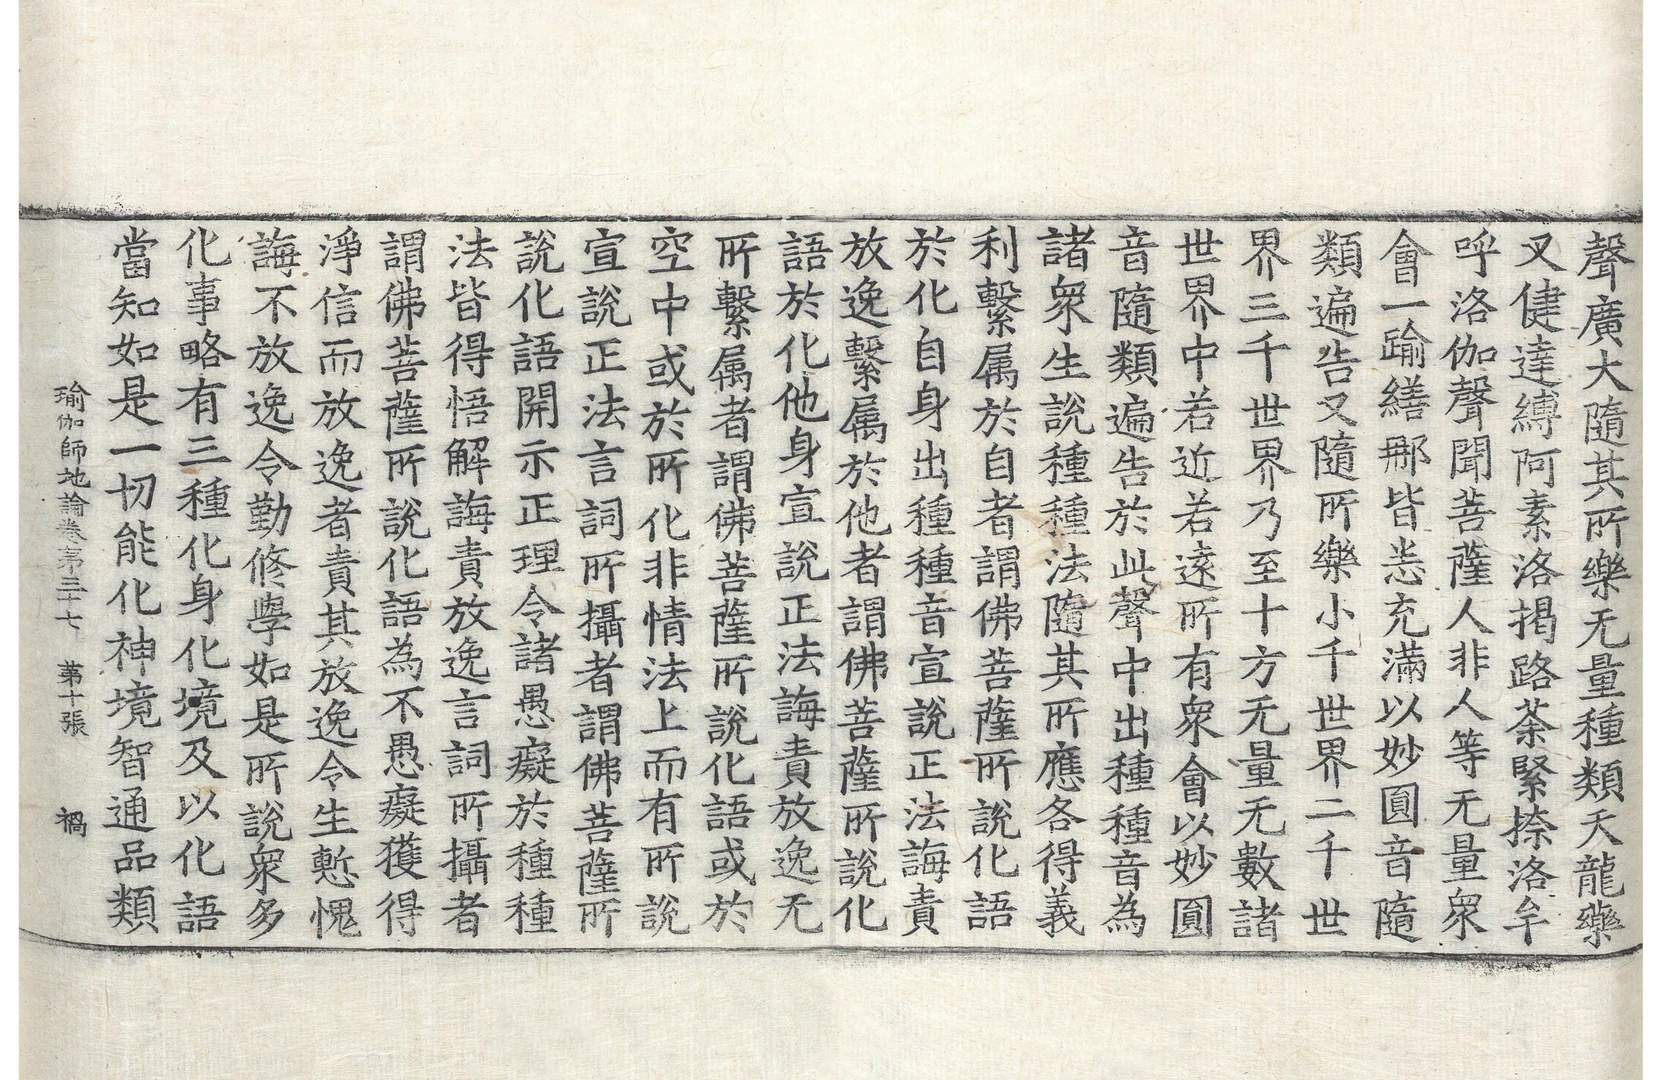 聲廣大隨其所樂无量種類天龍藥
叉健達縛阿素洛揭路荼緊捺洛牟
呼洛伽聲聞菩薩人非人等无量衆
會一踰繕那皆悉充滿以妙圓音隨
類遍告又隨所樂小千世界二千世
界三千世界乃至十方无量无數諸
世界中若近若遠所有衆會以妙圓
音隨類遍告於此聲中出種種音為
諸衆生說種種法隨其所應各得義
利繫属於自者謂佛菩薩所說化語
於化自身出種種音宣說正法誨責
放逸繫属於他者謂佛菩薩所說化
語於化他身宣說正法誨責放逸无
所繫属者謂佛菩薩所說化語或於
空中或於所化非情法上而有所說
宣說正法言詞所攝者謂佛菩薩所
說化語開示正理令諸愚癡於種種
法皆得悟解誨責放逸言詞所攝者
謂佛菩薩所說化語為不愚癡獲得
淨信而放逸者責其放逸令生慙愧
誨不放逸令勤修學如是所說衆多
化事略有三種化身化境及以化語
當知如是一切能化神境智通品類
瑜伽師地論卷第三十七 第十張 禍